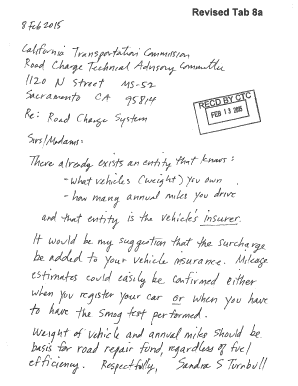 Revised Tab 8a
8 Feb 2015
California Transportation Commission
Road Charge Technical Advisory Committee
1120 N Street MS-52
Sacramento CA 95814
REC'D BY CTC
FEB 13 2015
Re: Road Charge System
Sirs/Madams:
There already exists an entity that knows:
- what vehicles (weight) you own
- how many annual miles you drive
and that entity is the vehicle's insurer.
It would be my suggestion that the surcharge
be added to your vehicle insurance. Mileage
estimates could easily be confirmed either
when you register your car or when you have
to have the smog test performed.
Weight of vehicle and annual miles should be
basis for road repair fund, regardless of fuel
efficiency. Respectfully, Sandra S Turnbull